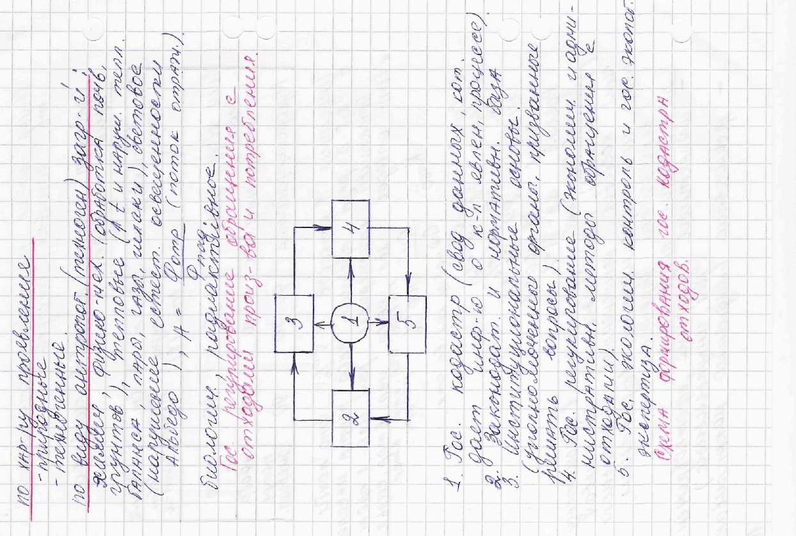 по хар-ру проявление
- природные
- техногенные.
по виду антропог. (техноген) загр-й:
химич, физико-мех. (обработка почв,
грунтов), тепловые (↑ t и наруш. тепл.
баланса, пара, газа, шлаки), световое
(нарушение естест. освещенности
Альбедо), A = Fотр / Fпад (поток отраж.)
биологич, радиоактивное.
Гос регулирование обращения с
отходами произ-ва и потребления.
2
3
1
4
5
1. Гос. кадастр (свод данных, кот.
дает инф-ю о к-л явлен, процессе).
2. Законодат. и нормативн. база
3. Институциональные основы.
(уполномоченного органы, призванные
решать вопросы).
4. Гос. регулирование (экономич. и адми-
нистративн. методы обращения с
отходами).
5. Гос. экологич. контроль и гос. эколог.
экспертиза.
Схема формирования гос. кадастра
отходов.